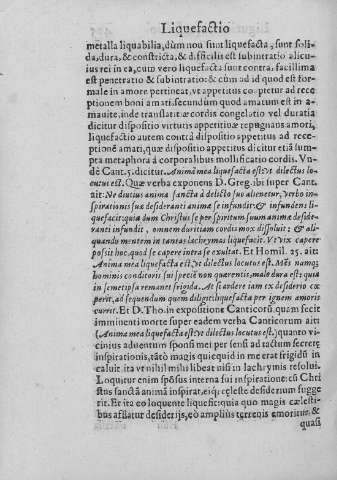 Liquefactio
metalla liquabilia, dùm non sunt liquefacta, sunt soli-
da, dura, & constricta, & difficilis est subintratio alicu-
ius rei in ea, cum vero liquefacta sunt contra, facillima
est penetratio & subintratio: & cùm ad id quod est for-
male in amore pertineat, vt appetitus coaptetur ad rece-
ptionem boni amati, secundùm quod amatum est in a-
mante, inde translatitiæ cordis congelatio vel duratio
dicitur dispositio virtutis appetitiuæ repugnans amori,
liquefactio autem contrà dispositio appetitus ad rece-
ptionē amati, quæ dispositio appetitus dicitur etiā sum-
pta metaphora à corporalibus mollificatio cordis. Vn-
dè Cant. 5. dicitur. Anima mea liquefacta est, vt dilectus lo-
cutus est. Quæ verba exponens D. Greg. ibi super Cant.
ait: Ne diutius anima sancta à dilecto suo alienetur, Verbo in-
spirationis suæ desideranti animæ se infundit: & infundens li-
quefacit: quia dum Christus se per spiritum suum animæ deside-
ranti infundit, omnem duritiam cordis mox dissoluit: & ali-
quandò mentem in tantas lachrymas liquefacit. Vt vix capere
possit hoc, quod se capere intra se exultat. Et Homil. 25. ait:
Anima mea liquefacta est, Vt dilectus locutus est. Mēs namq;
hominis conditoris sui speciē non quærentis, malè dura est: quia
in semetipsa remanet frigida. At si ardere iam ex desiderio cæ-
perit, ad sequendum quem diligit liquefacta per ignem amoris
currit. Et D. Tho. in expositione Canticorū quam fecit
imminenti morte super eadem verba Canticorum ait:
(Anima mea liquefacta est, Vt dilectus locutus est.) quanto vi-
cinius aduentum sponsi mei per sensi ad tactum secretę
inspirationis, tātò magis quicquid in me erat frigidū in-
caluit, ita vt nihil mihi libeat nisi in lachrymis resolui.
Loquitur enim spōsus interna sui inspiratione: cū Chri
stus sanctā animā inspirat, eiq; cęleste desiderium sugge
rit. Et ita eo loquente liquefit: quia quo magis cælesti-
bus afflatur desiderijs, eò ampliùs terrenis emoritur, &
quasi